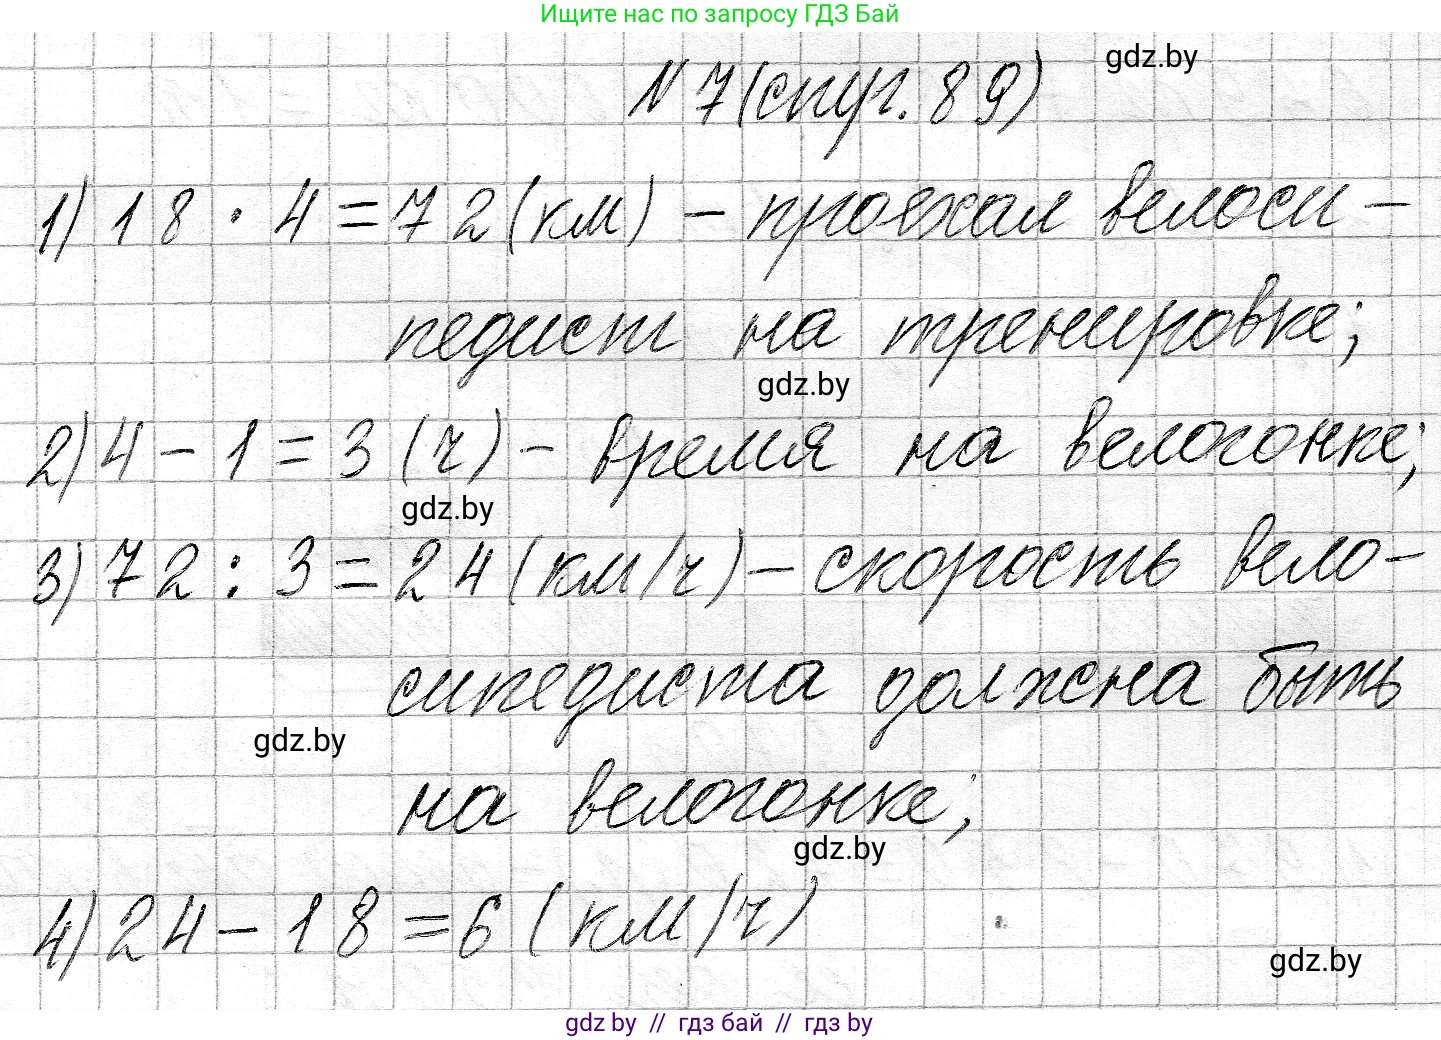 Ищите нас по запросу ГДЗ Бай
gdz.by
N 7 (стр. 89)
1) 18 · 4 = 72 (км) – проехал велоси-
педист на тренировке;
gdz.by
2) 4 – 1 = 3 (ч) – время на велогонке;
gdz.by
3) 72 : 3 = 24 (км/ч) – скорость вело-
сипедиста должна быть
gdz.by
на велогонке;
gdz.by
4) 24 – 18 = 6 (км/ч)
gdz.by
gdz by // гдз бай // гдз by